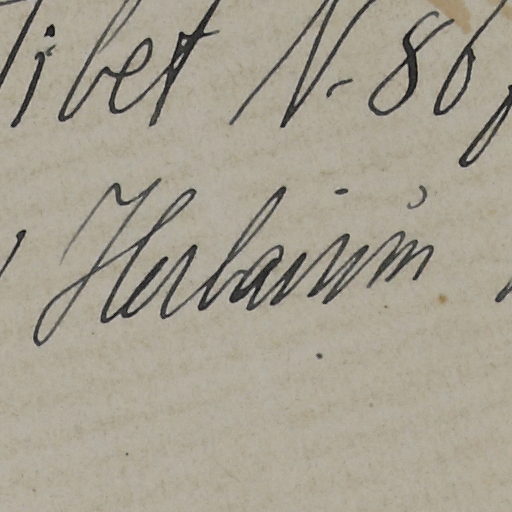 Tibet N. 86
Herbarium